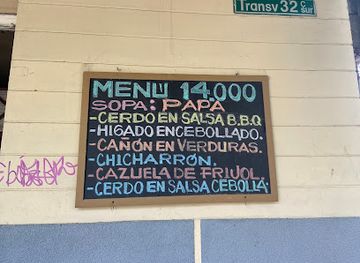 Transv 32 C sur
MENÚ 14.000
SOPA: PAPA
-CERDO EN SALSA B.B.Q
-HIGADO ENCEBOLLADO.
-CAÑÓN EN VERDURAS.
-CHICHARRÓN.
-CAZUELA DE FRIJOL.
-CERDO EN SALSA CEBOLLA